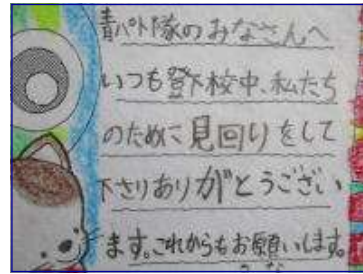 青パト隊のみなさんへ
いつも登下校中、私たち
のために見回りをして
下さりありがとうござい
ます。これからもお願いします。